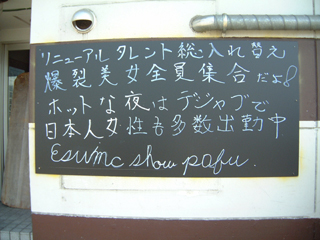 リニューアルタレント総入れ替え
爆裂美女全員集合だよ!
ホットな夜はデジャブで
日本人女性も多数出動中
Esumc show pafu.